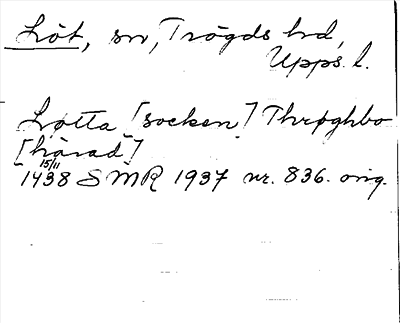 Löt, sn, Trögds hd,
Upps. l.
Løtta [socken] Thrøghbo
[härad]
15/11
1438 SMR 1937 nr. 836. orig.